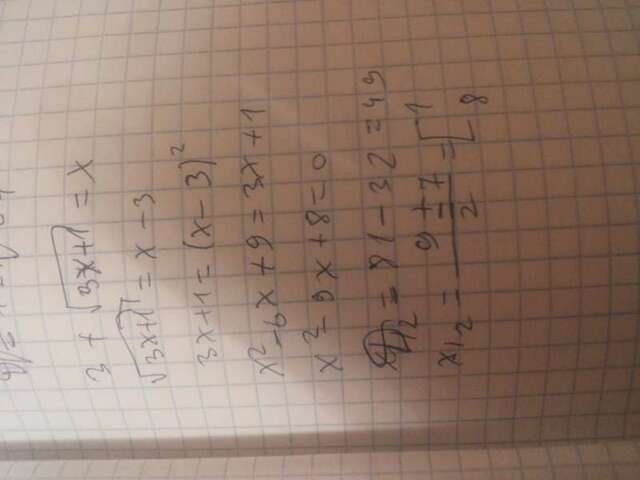 3 + √(3x+1) = x
√(3x+1) = x - 3
3x+1 = (x-3)²
x² - 6x + 9 = 3x + 1
x² - 9x + 8 = 0
= 81 - 32 = 49
x₁,₂ = (9 ± 7)/2 = [1 8